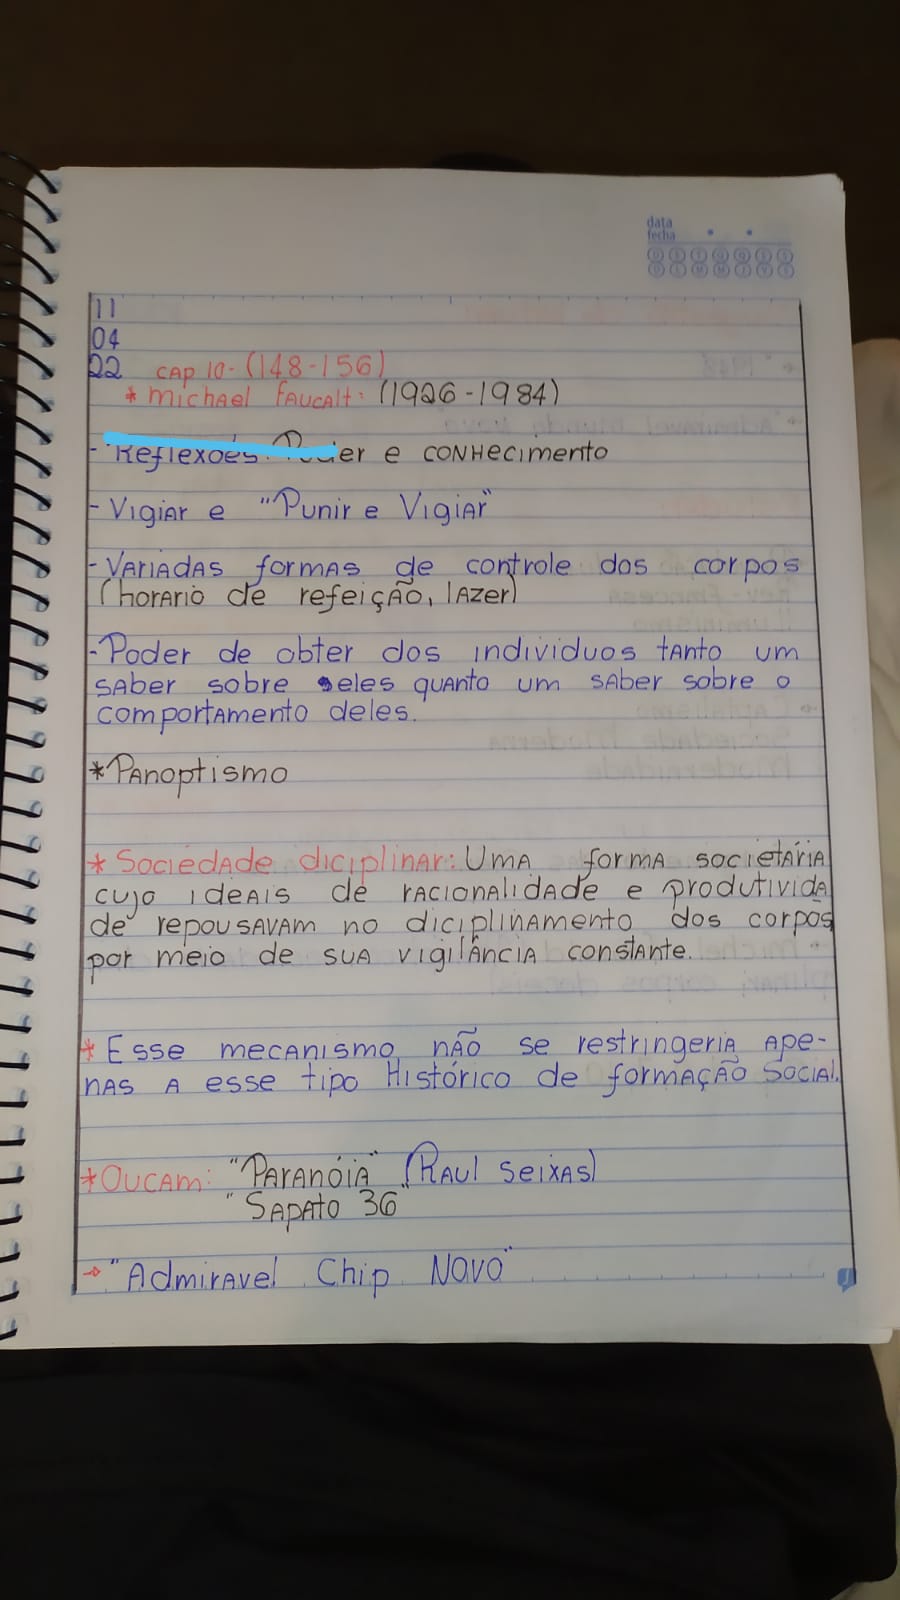 data
fecha
11
04
22 CAP 10- (148-156)
* Michael Faucalt: (1926-1984)
- Reflexões: Poder e conhecimento
- Vigiar e "Punir e Vigiar"
- Variadas formas de controle dos corpos
(horario de refeição, lazer)
- Poder de obter dos individuos tanto um
saber sobre eles quanto um saber sobre o
comportamento deles.
* Panoptismo
* Sociedade diciplinar: Uma forma societária
cujo ideais de racionalidade e produtivida
de repousavam no diciplinamento dos corpos
por meio de sua vigilância constante.
* Esse mecanismo não se restringeria ape-
nas a esse tipo Histórico de formação social.
* Oucam: "Paranóia" (Raul Seixas)
"Sapato 36"
→ "Admiravel Chip Novo"